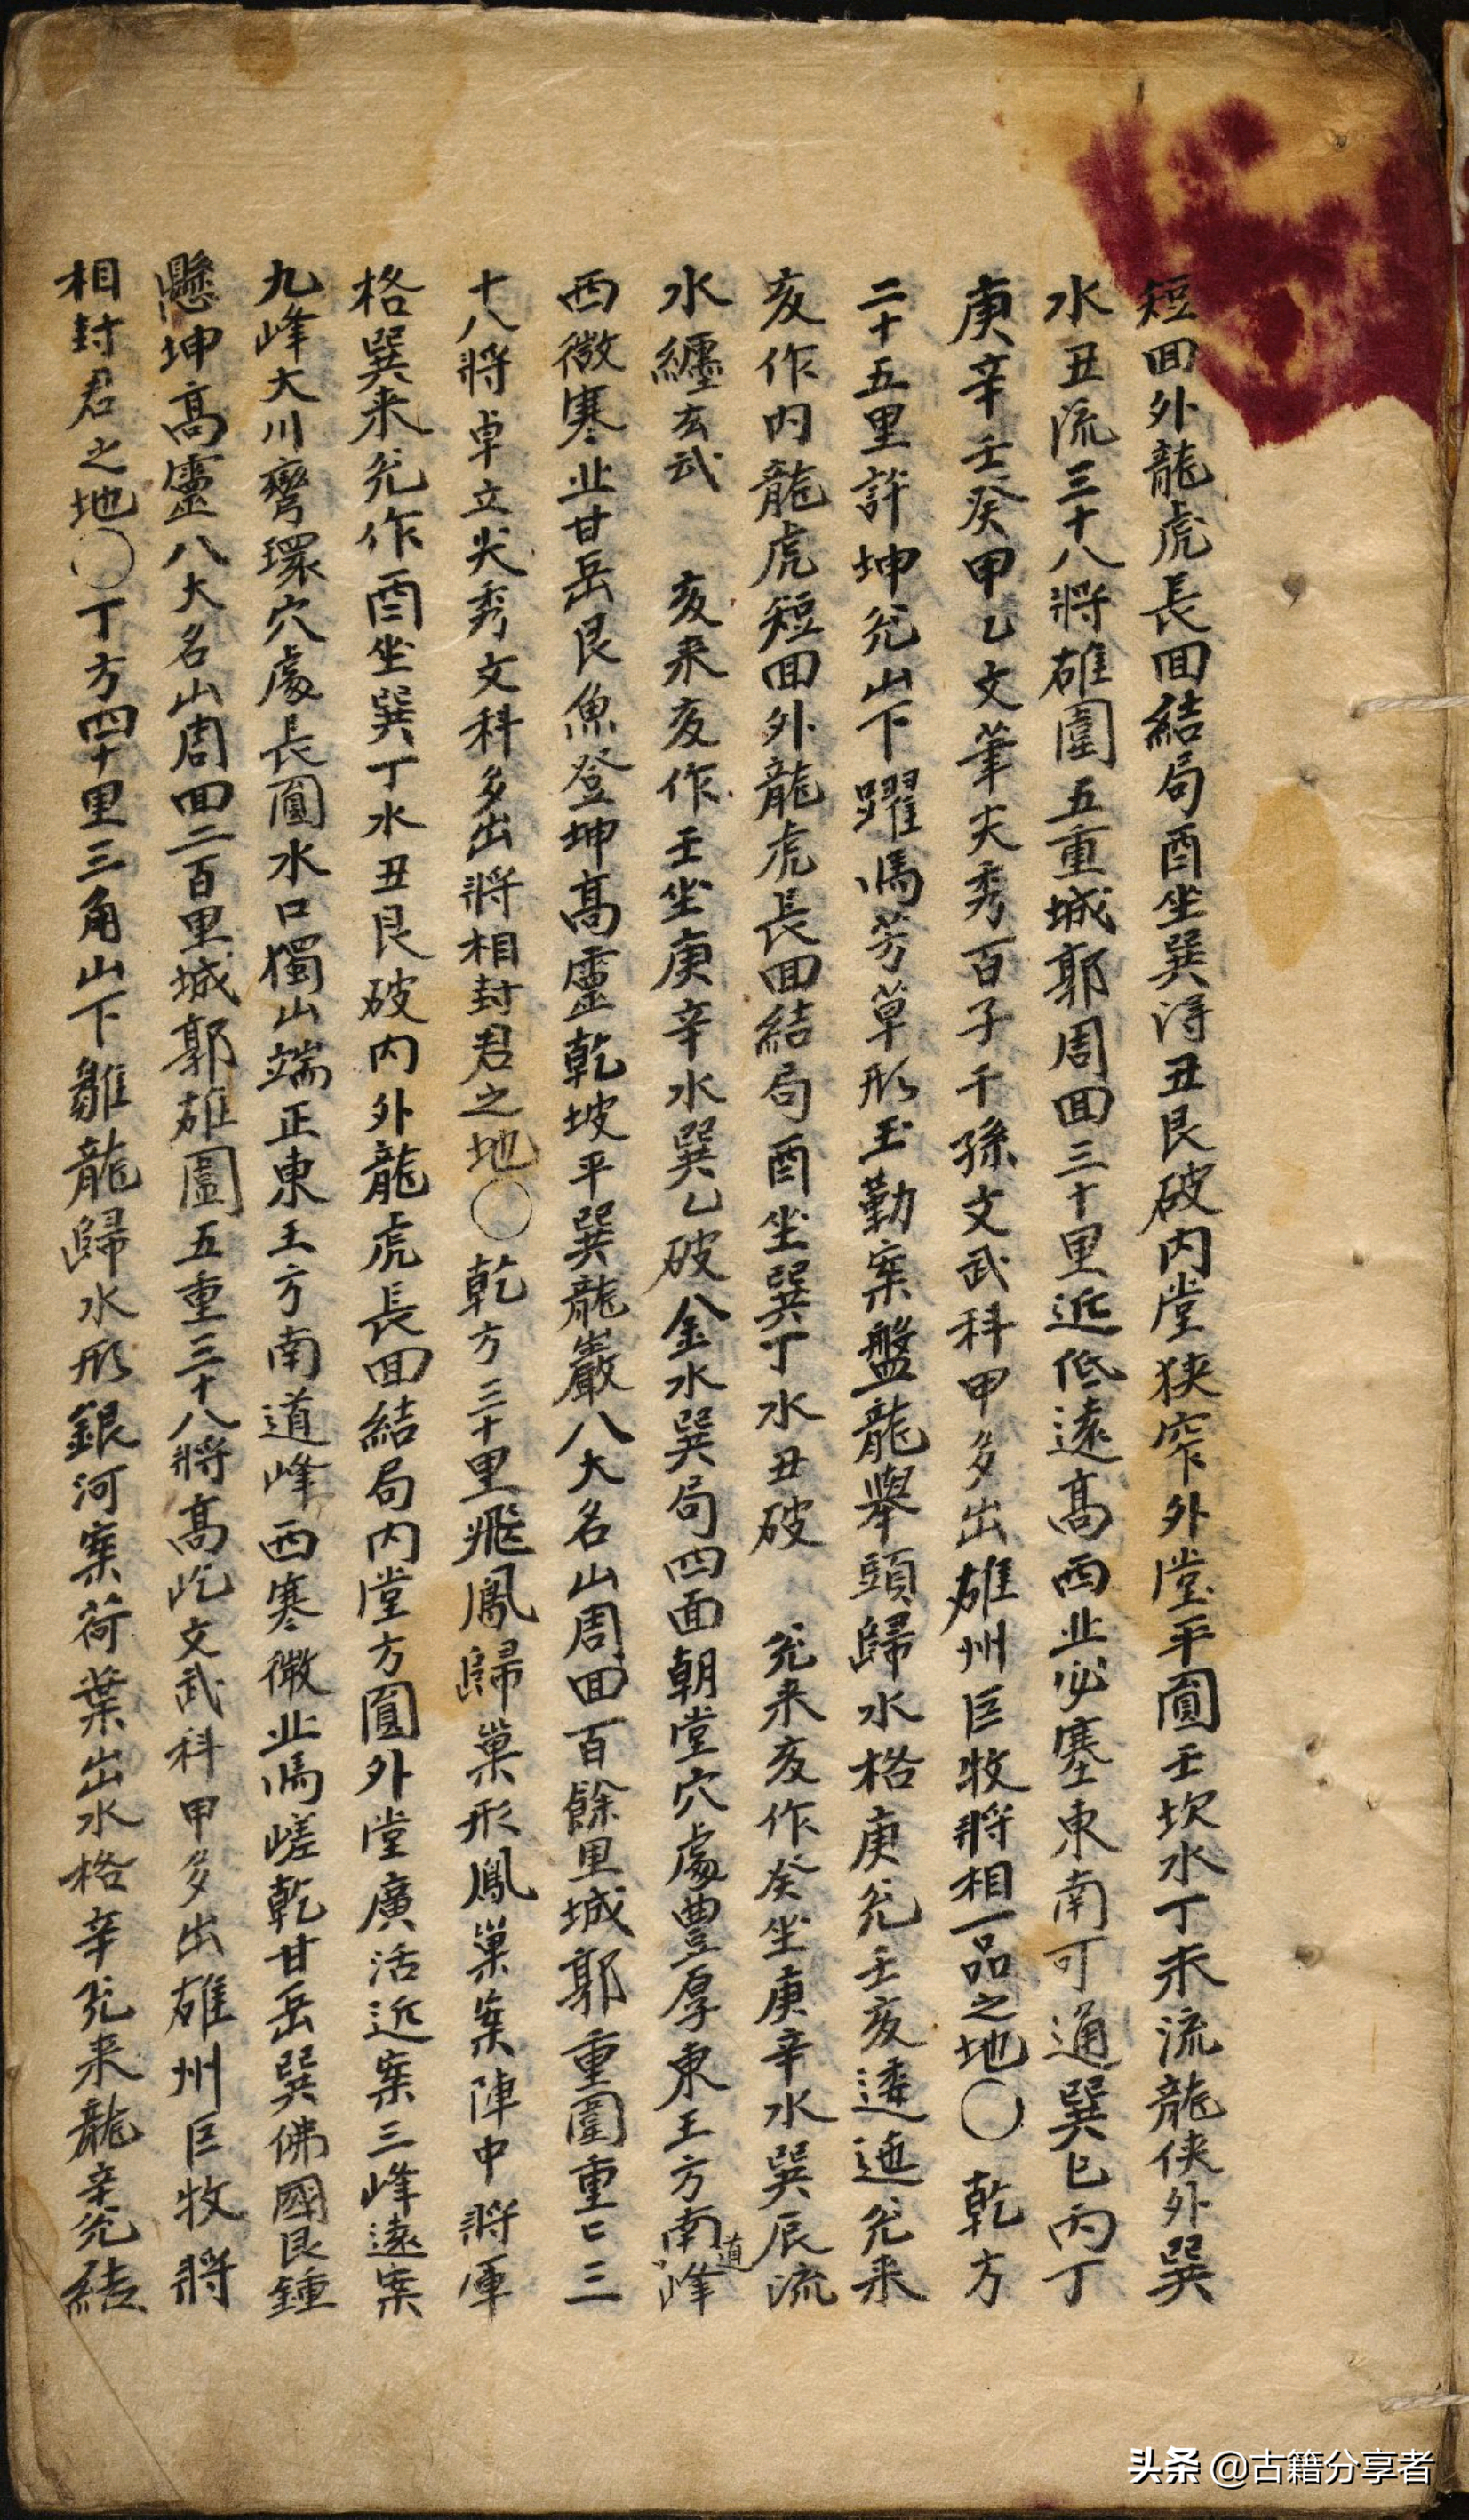 短回外龍虎長回結局酉坐巽淂丑艮破内堂狹窄外堂平圓壬坎水丁未流龍俠外巽
水丑流三十八將雄圍五重城郭周回三十里近低遠高西北必塞東南可通巽巳丙丁
庚辛壬癸甲乙文筆尖秀百子千孫文武科甲多出雄州巨牧將相一品之地〇乾方
二十五里許坤兊山下躍馬芳草形玉勤案盤龍舉頭歸水格庚兊壬亥逶迤兊来
亥作内龍虎短回外龍虎長回結局酉坐巽丁水丑破 兊来亥作癸坐庚辛水巽辰流
水纏玄武 亥来亥作壬坐庚辛水巽乙破金水巽局四面朝堂穴處豊厚東王方南道峰
西微寒北甘岳艮魚登坤高靈乾坡平巽龍巖八大名山周回百餘里城郭重圍重〻三
十八將卓立尖秀文科多出將相封君之地〇乾方三十里飛鳳歸巢形鳳巢案陣中將軍
格巽来兊作酉坐巽丁水丑艮破内外龍虎長回結局内堂方圓外堂廣活近案三峰遠案
九峰大川彎環穴處長圓水口獨山端正東王方南道峰西寒微北馬嵯乾甘岳巽佛國艮鍾
懸坤高靈八大名山周回二百里城郭雄圍五重三十八將高屹文武科甲多出雄州巨牧將
相封君之地〇丁方四十里三角山下雛龍歸水形銀河案荷葉出水格辛兊来龍辛兊結
头条 @古籍分享者